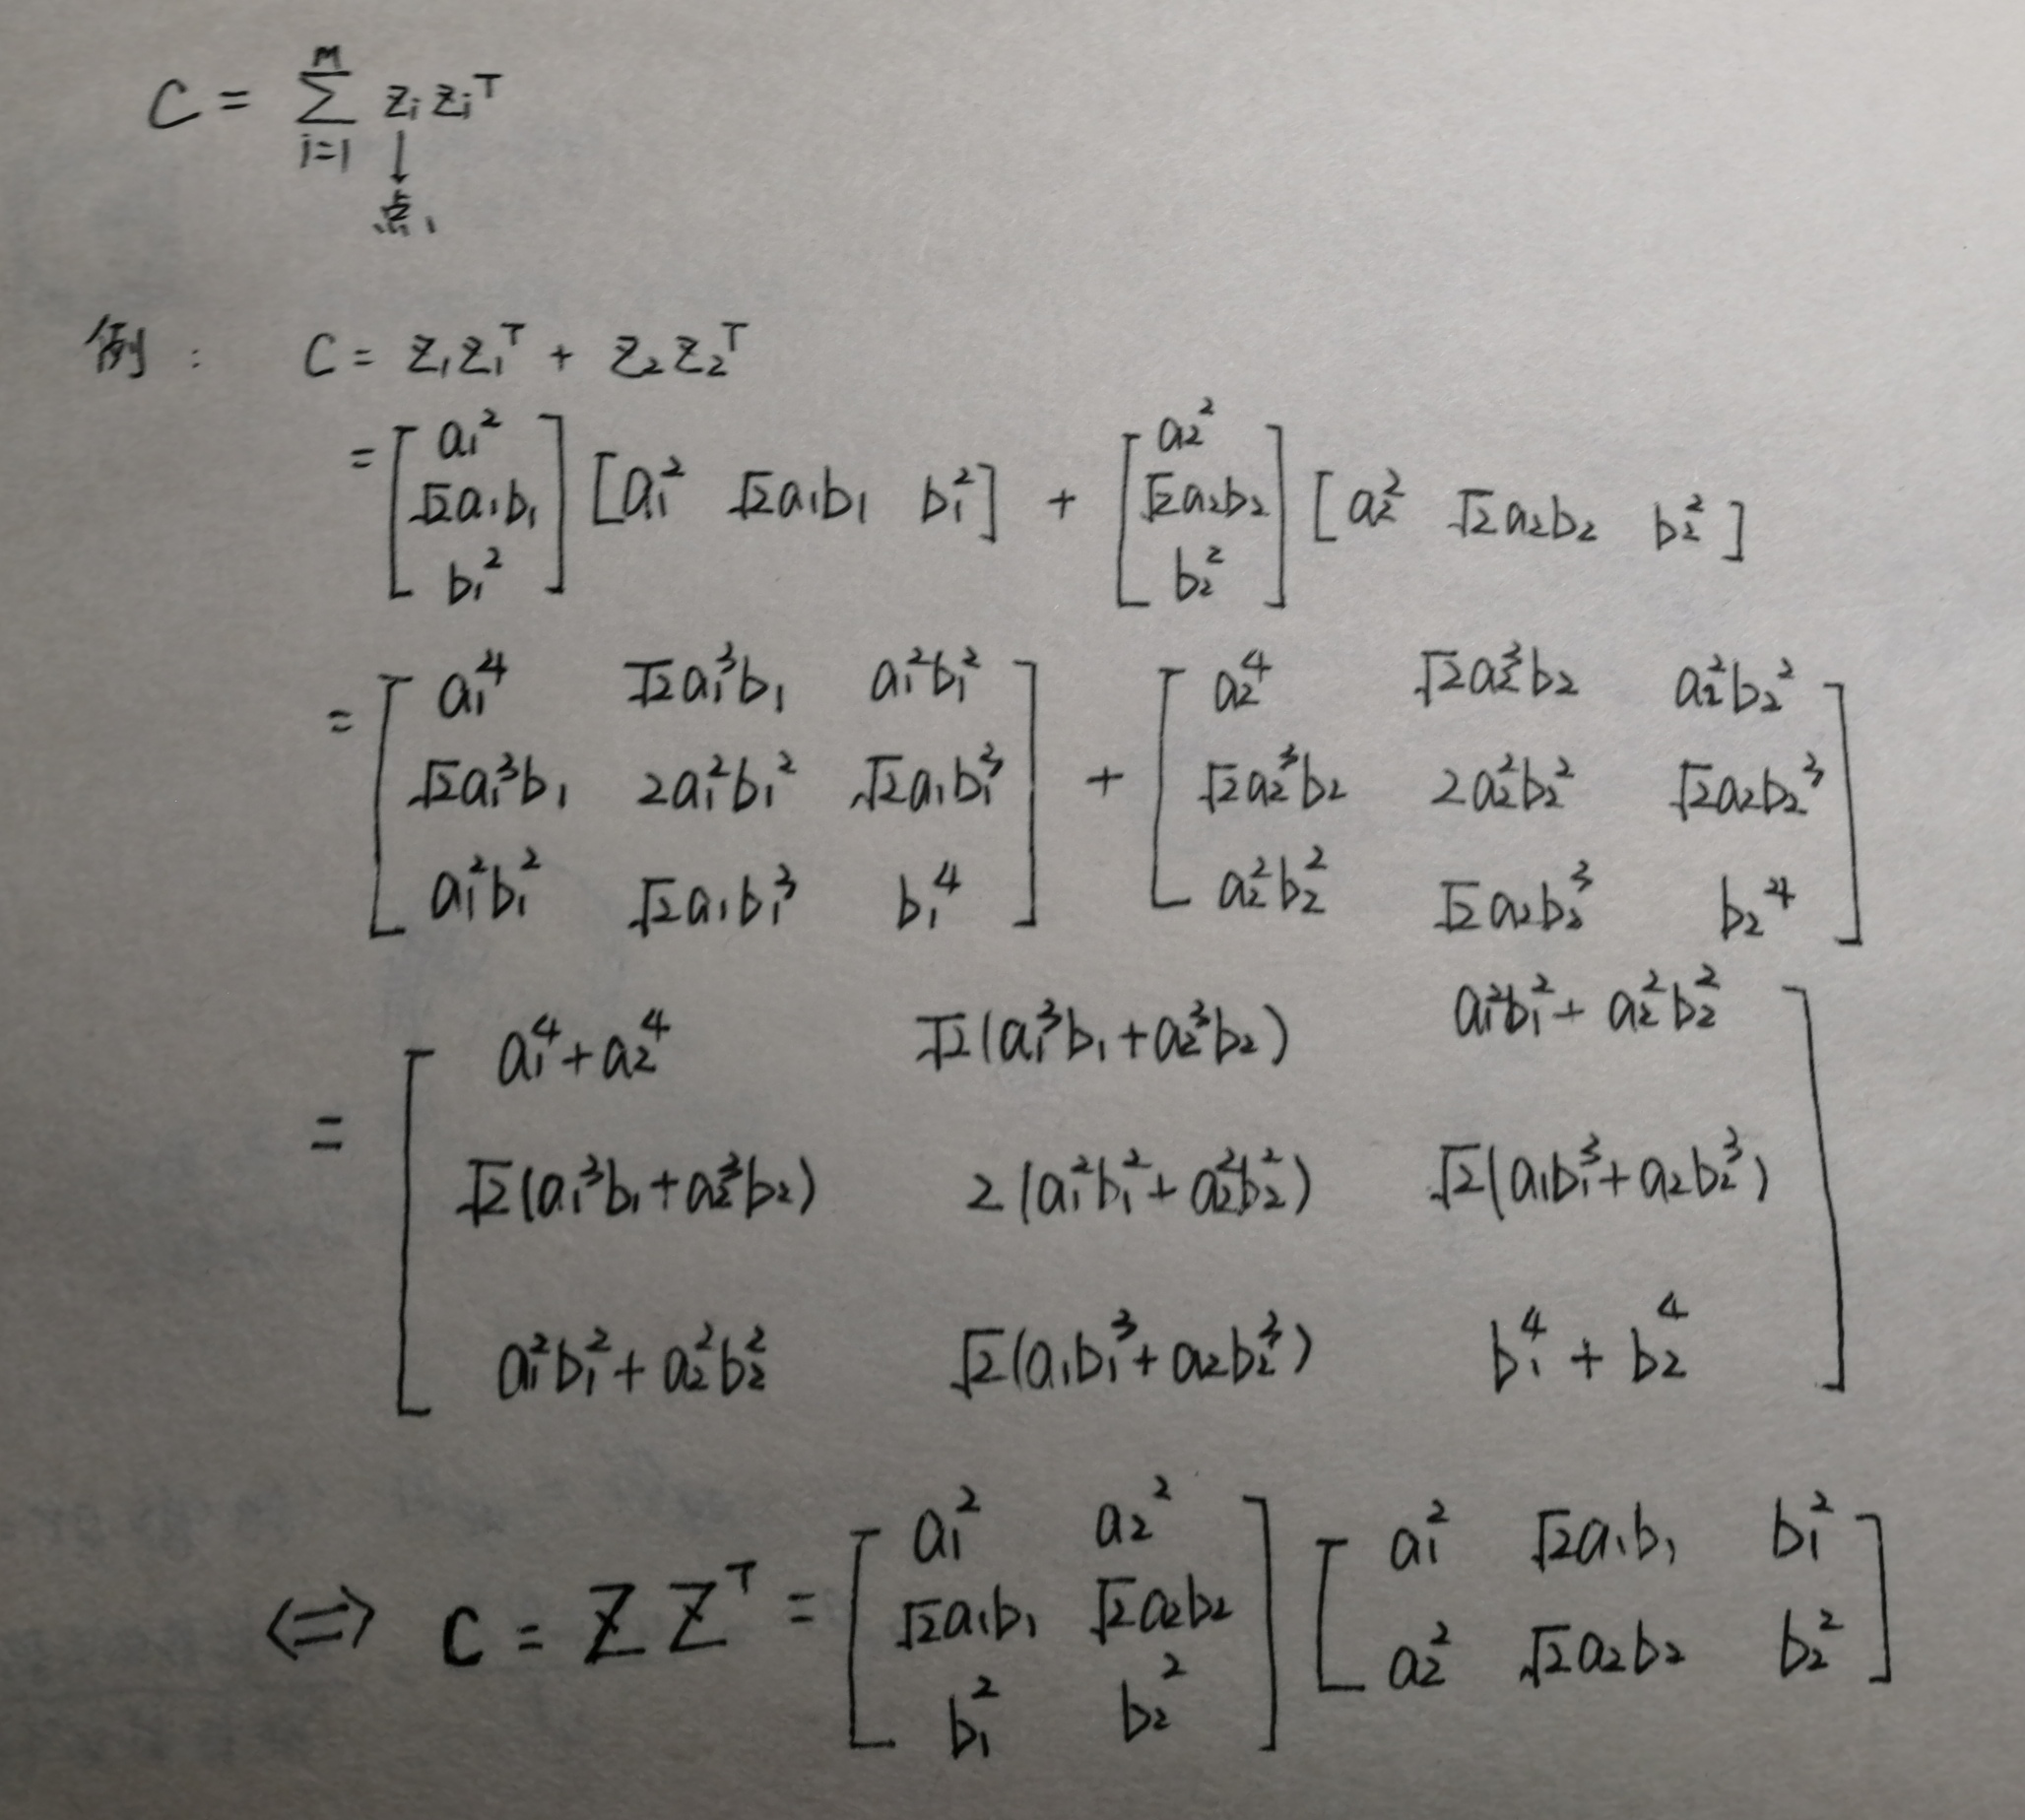 C = \sum_{i=1}^{m} z_i z_i^T
↓
点
例: C = z_1 z_1^T + z_2 z_2^T
= \begin{bmatrix} a_1^2 \\ \sqrt{2}a_1b_1 \\ b_1^2 \end{bmatrix} [a_1^2 \quad \sqrt{2}a_1b_1 \quad b_1^2] + \begin{bmatrix} a_2^2 \\ \sqrt{2}a_2b_2 \\ b_2^2 \end{bmatrix} [a_2^2 \quad \sqrt{2}a_2b_2 \quad b_2^2]
= \begin{bmatrix} a_1^4 & \sqrt{2}a_1^3b_1 & a_1^2b_1^2 \\ \sqrt{2}a_1^3b_1 & 2a_1^2b_1^2 & \sqrt{2}a_1b_1^3 \\ a_1^2b_1^2 & \sqrt{2}a_1b_1^3 & b_1^4 \end{bmatrix} + \begin{bmatrix} a_2^4 & \sqrt{2}a_2^3b_2 & a_2^2b_2^2 \\ \sqrt{2}a_2^3b_2 & 2a_2^2b_2^2 & \sqrt{2}a_2b_2^3 \\ a_2^2b_2^2 & \sqrt{2}a_2b_2^3 & b_2^4 \end{bmatrix}
= \begin{bmatrix} a_1^4+a_2^4 & \sqrt{2}(a_1^3b_1+a_2^3b_2) & a_1^2b_1^2+a_2^2b_2^2 \\ \sqrt{2}(a_1^3b_1+a_2^3b_2) & 2(a_1^2b_1^2+a_2^2b_2^2) & \sqrt{2}(a_1b_1^3+a_2b_2^3) \\ a_1^2b_1^2+a_2^2b_2^2 & \sqrt{2}(a_1b_1^3+a_2b_2^3) & b_1^4+b_2^4 \end{bmatrix}
⟺ C = Z Z^T = \begin{bmatrix} a_1^2 & a_2^2 \\ \sqrt{2}a_1b_1 & \sqrt{2}a_2b_2 \\ b_1^2 & b_2^2 \end{bmatrix} \begin{bmatrix} a_1^2 & \sqrt{2}a_1b_1 & b_1^2 \\ a_2^2 & \sqrt{2}a_2b_2 & b_2^2 \end{bmatrix}